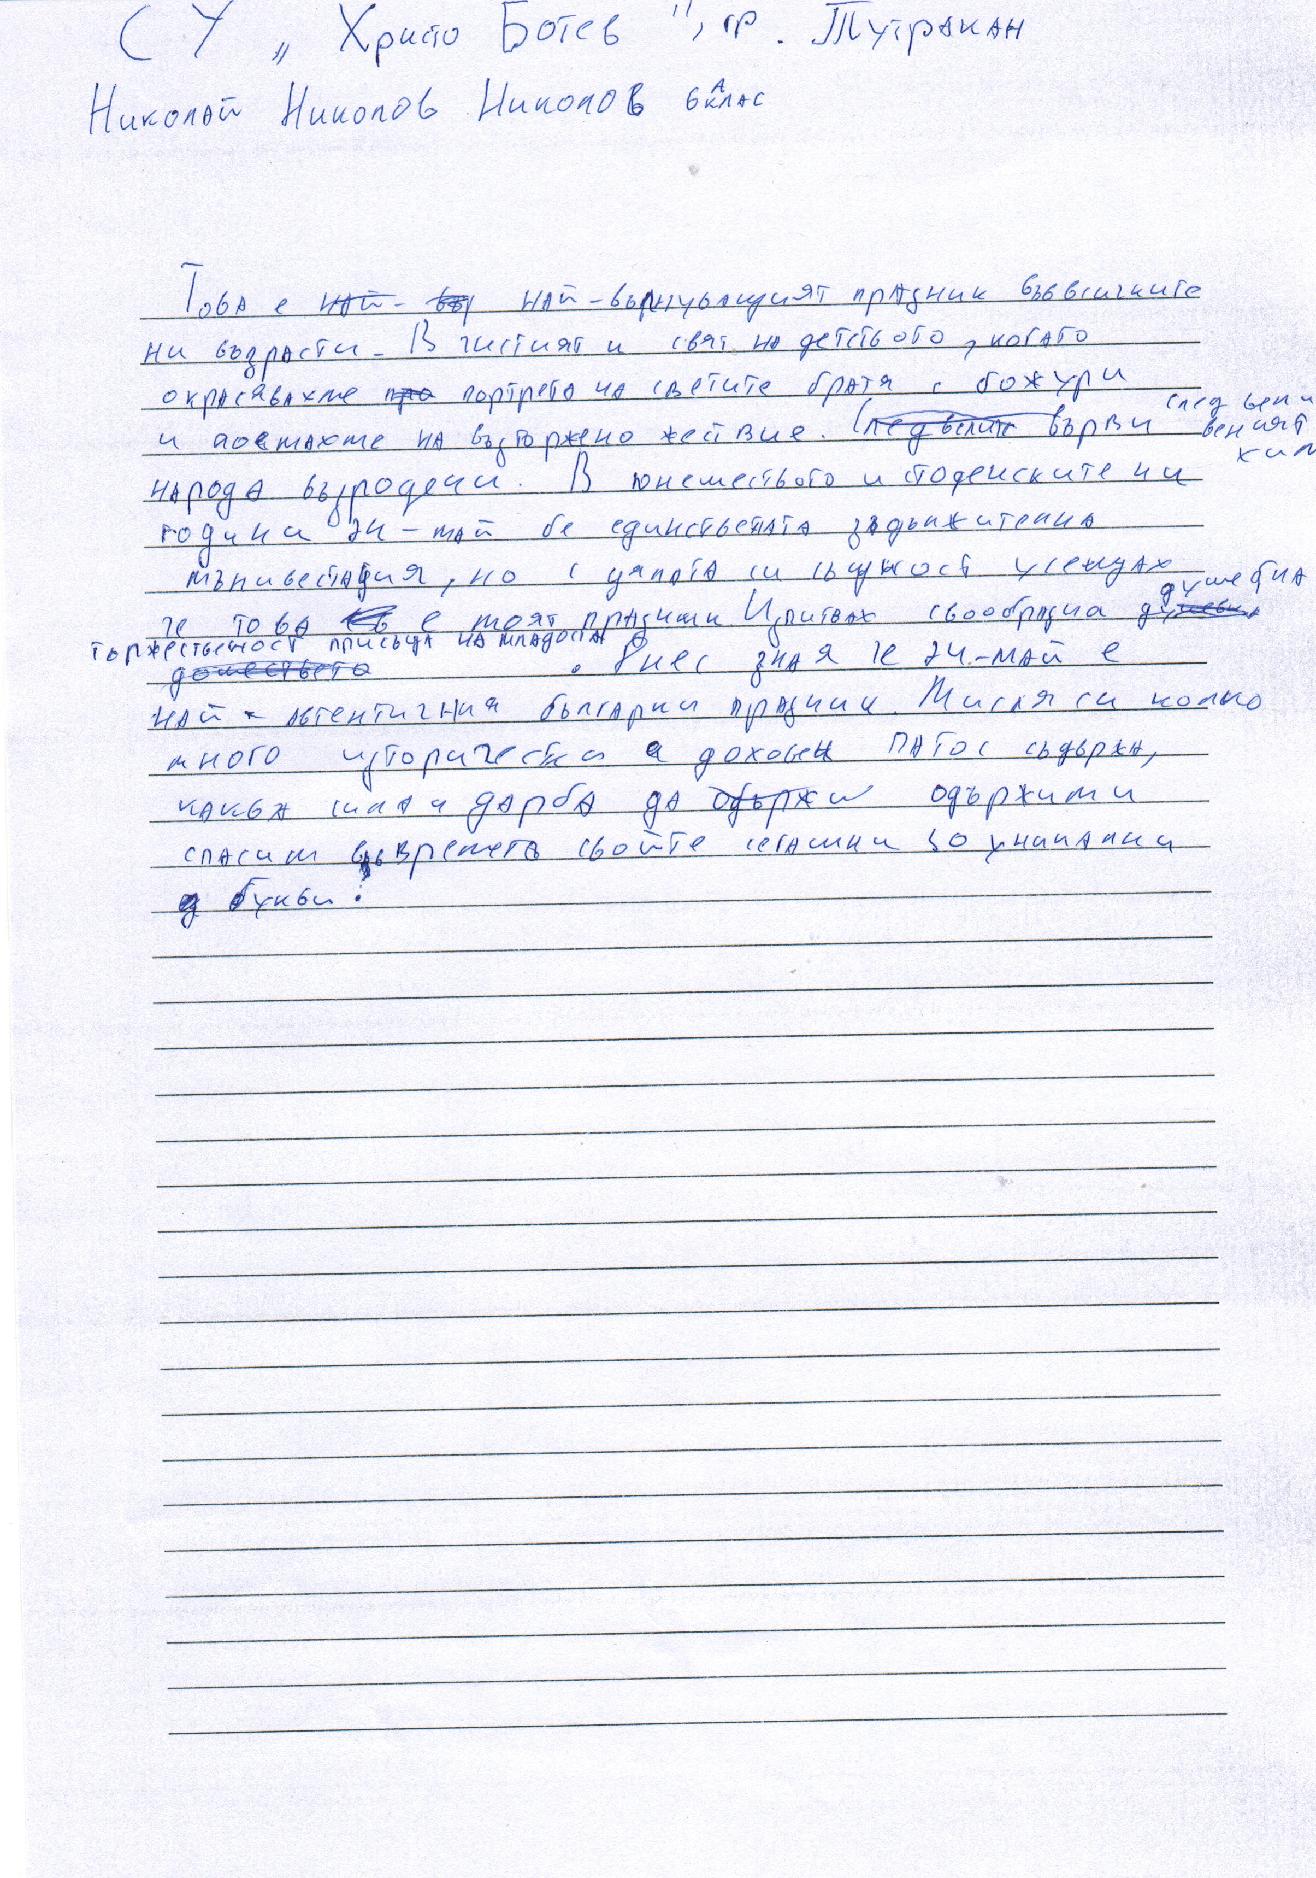 СУ „Христо Ботев", гр. Тутракан
Николай Николов Николов 6 А клас
Това е най-вълнуващият празник във всичките
ни възрасти. В чистият и свят на детството, когато
окрасявахме портрета на светите братя с божури
и поемахме на възторжено жествие. върви след вели
веният хим
народа възродени. В юнешеството и стоденските ни
години 24-май бе единствената задължителна
мънивестация, но с цялата си същност усещах
че това е моят празник. Изпитвах своообразна душевна
тържественост присъща на младоста. Днес зная че 24.-май е
най-автентичния български празник. Мисля си колко
много исторически и доховен патос съдържа,
каква сила и дарба да одържим и
спасим във времето свойте сегашни 30 уникални
букви!